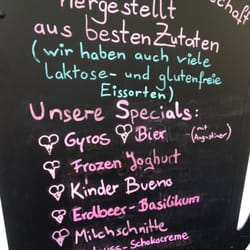 hergestellt
aus besten Zutaten
(wir haben auch viele
Laktose- und glutenfreie
Eissorten)
Unsere Specials:
Gyros Bier (mit Augustiner)
Frozen Yoghurt
Kinder Bueno
Erdbeer-Basilikum
Milchschnitte
-Schokocreme